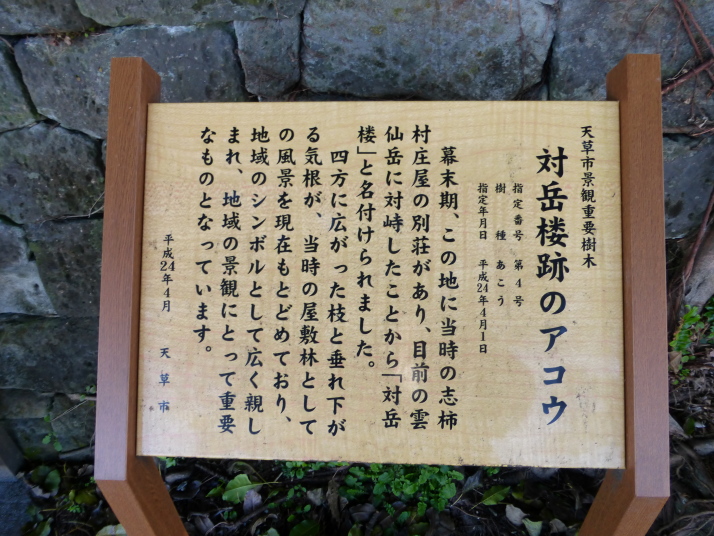 天草市景観重要樹木
対岳楼跡のアコウ
指定番号 第4号
樹種 あこう
指定年月日 平成24年4月1日
幕末期、この地に当時の志柿
村庄屋の別荘があり、目前の雲
仙岳に対峙したことから「対岳
楼」と名付けられました。
四方に広がった枝と垂れ下が
る気根が、当時の屋敷林として
の風景を現在もとどめており、
地域のシンボルとして広く親し
まれ、地域の景観にとって重要
なものとなっています。
平成24年4月 天草市